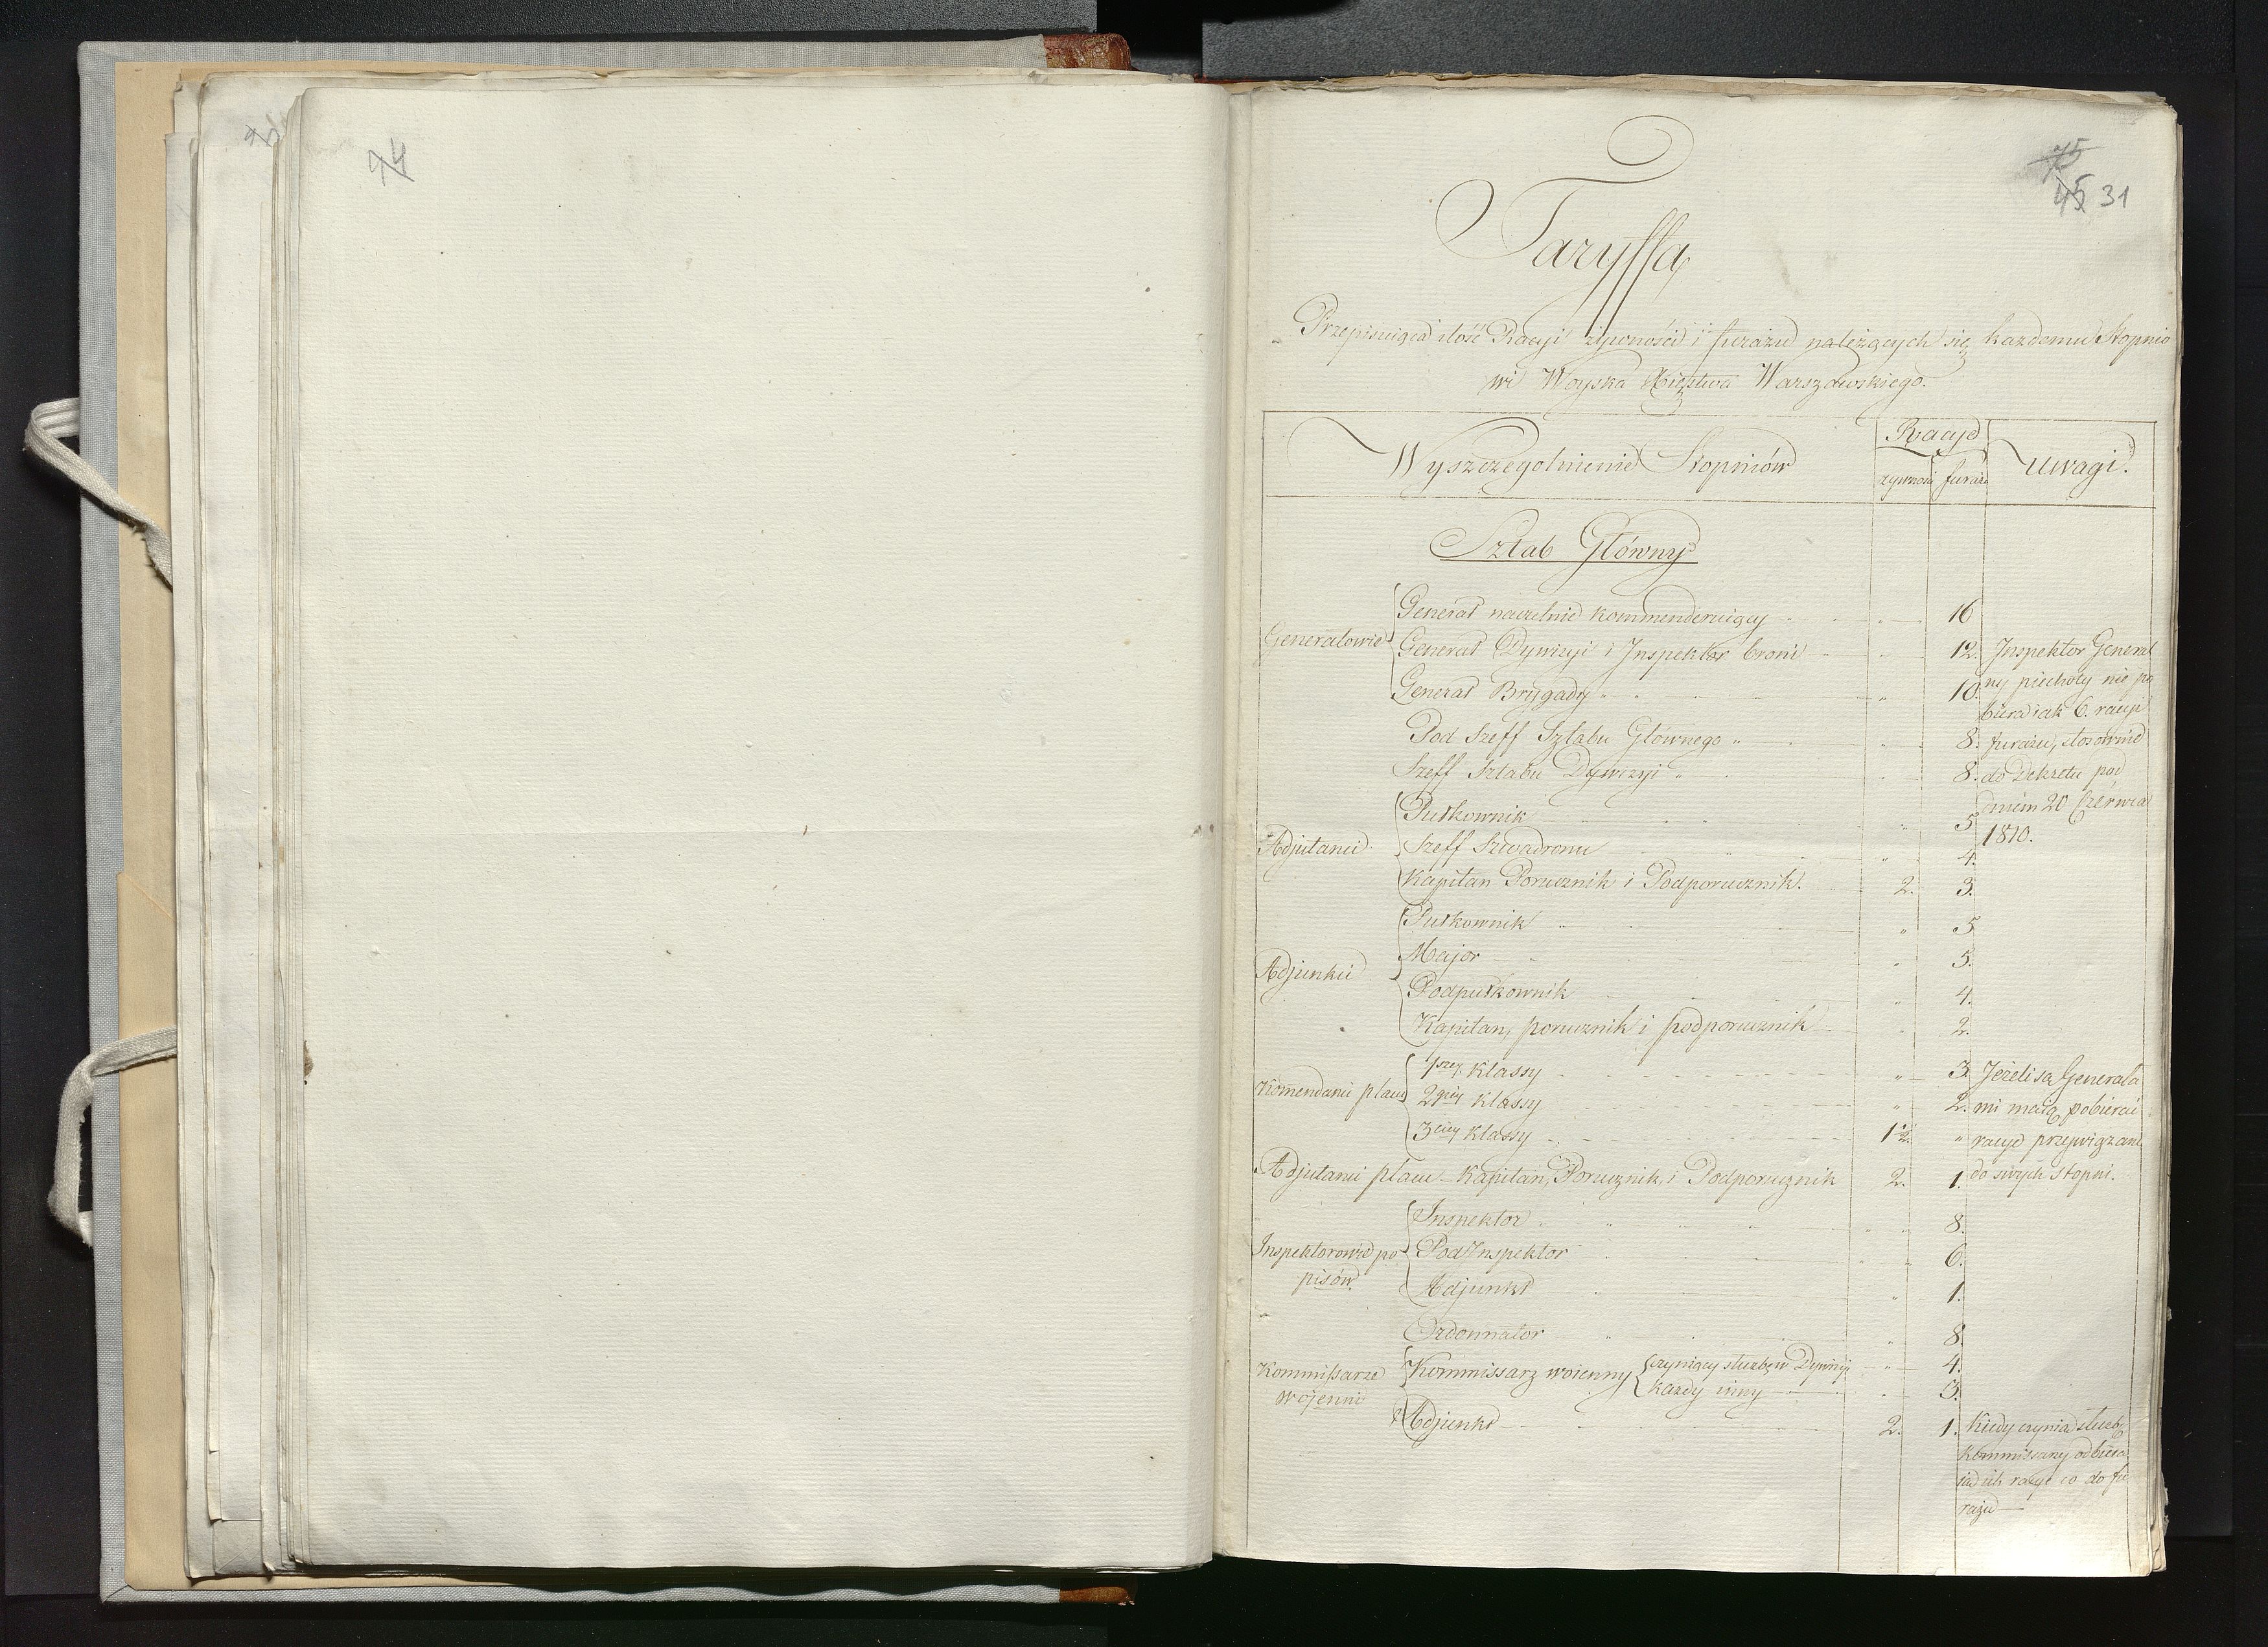 74
75
45 31
Taryffa
Przepisuiąca ilość Racyi żywności i furażu należących się każdemu Stopnio
wi Woyska Xięztwa Warszawskiego.
Wyszczegolnienie Stopniów
Racye
żywności furażu
Uwagi.
Sztab Główny
Generałowie
Generał naczelnie kommenderuiący 16
Generał Dywizyi i Inspektor broni 12. Inspektor General
Generał Brygady 10. ny piechoty nie po
biera iak 6. racyi
Pod Szeff Sztabu Głównego 8. furażu, stosownie
Szeff Sztabu Dywizyi 8. do Dekretu pod
dniem 20 Czerwca
1810.
Adjutanci
Pułkownik 5
Szeff Szwadronu 4.
Kapitan Porucznik i Podporucznik. 2. 3.
Adjunkci
Pułkownik 5
Major 5.
Podpułkownik 4.
Kapitan, porucznik i podporucznik 2.
Komendanci placu
1szey klassy 3. Jeżeli są Generała
2giey klassy 2. mi maią pobierać
3ciey klassy 1½. " racye przywiązane
Adjutanci placu Kapitan, Porucznik, i Podporucznik 2. 1. do swych stopni.
Inspektorowie po
pisów.
Inspektor 8.
PodInspektor 6.
Adjunkt 1.
Ordonnator 8.
Kommissarze
wojenni
Kommissarz woienny czyniący służbę w Dywizyi 4.
każdy inny 3.
Adjunkt 2. 1. Kiedy czynią służbę
Kommissarzy odbiera
ią ich racye co do fu
rażu